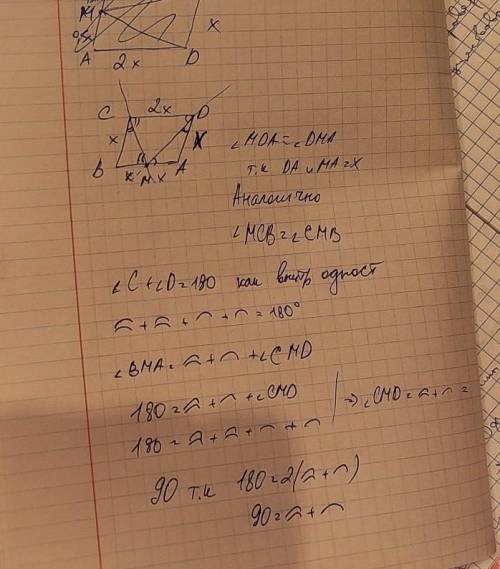 A 2x D x
C 2x D
x x
B x M x A
∠MDA = ∠DMA
т.к DA и MA = x
Аналогично
∠MCB = ∠CMB
∠C + ∠D = 180 как внутр одност
⌢̑ + ⌢̑ + ⌢ + ⌢ = 180°
∠BMA = ⌢̑ + ⌢ + ∠CMD
180 = ⌢̑ + ⌢ + ∠CMD
⇒ ∠CMD = ⌢̑ + ⌢ =
180 = ⌢̑ + ⌢̑ + ⌢ + ⌢
90 т.к 180 = 2(⌢̑ + ⌢)
90 = ⌢̑ + ⌢